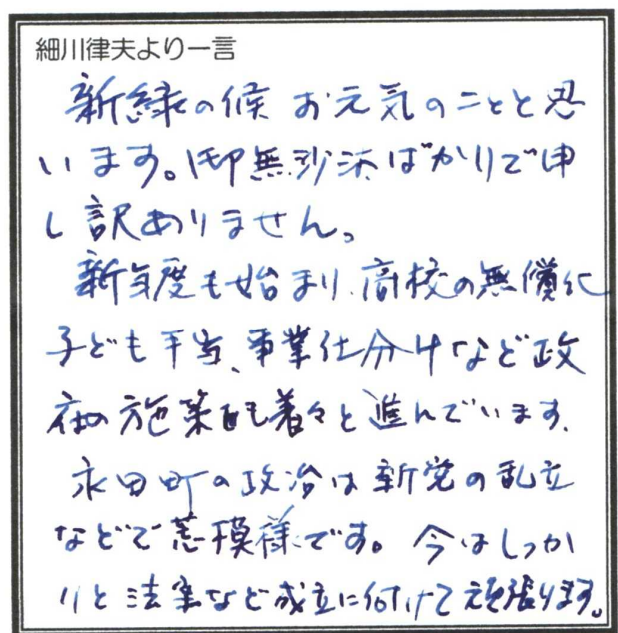 細川律夫より一言
新緑の候 お元気のことと思
います。御無沙汰ばかりで申
し訳ありません。
新年度も始まり、高校の無償化
子ども手当、事業仕分けなど政
府の施策も着々と進んでいます。
永田町の政治は新党の乱立
などで荒模様です。今はしっか
りと法案など成立に向けて頑張ります。